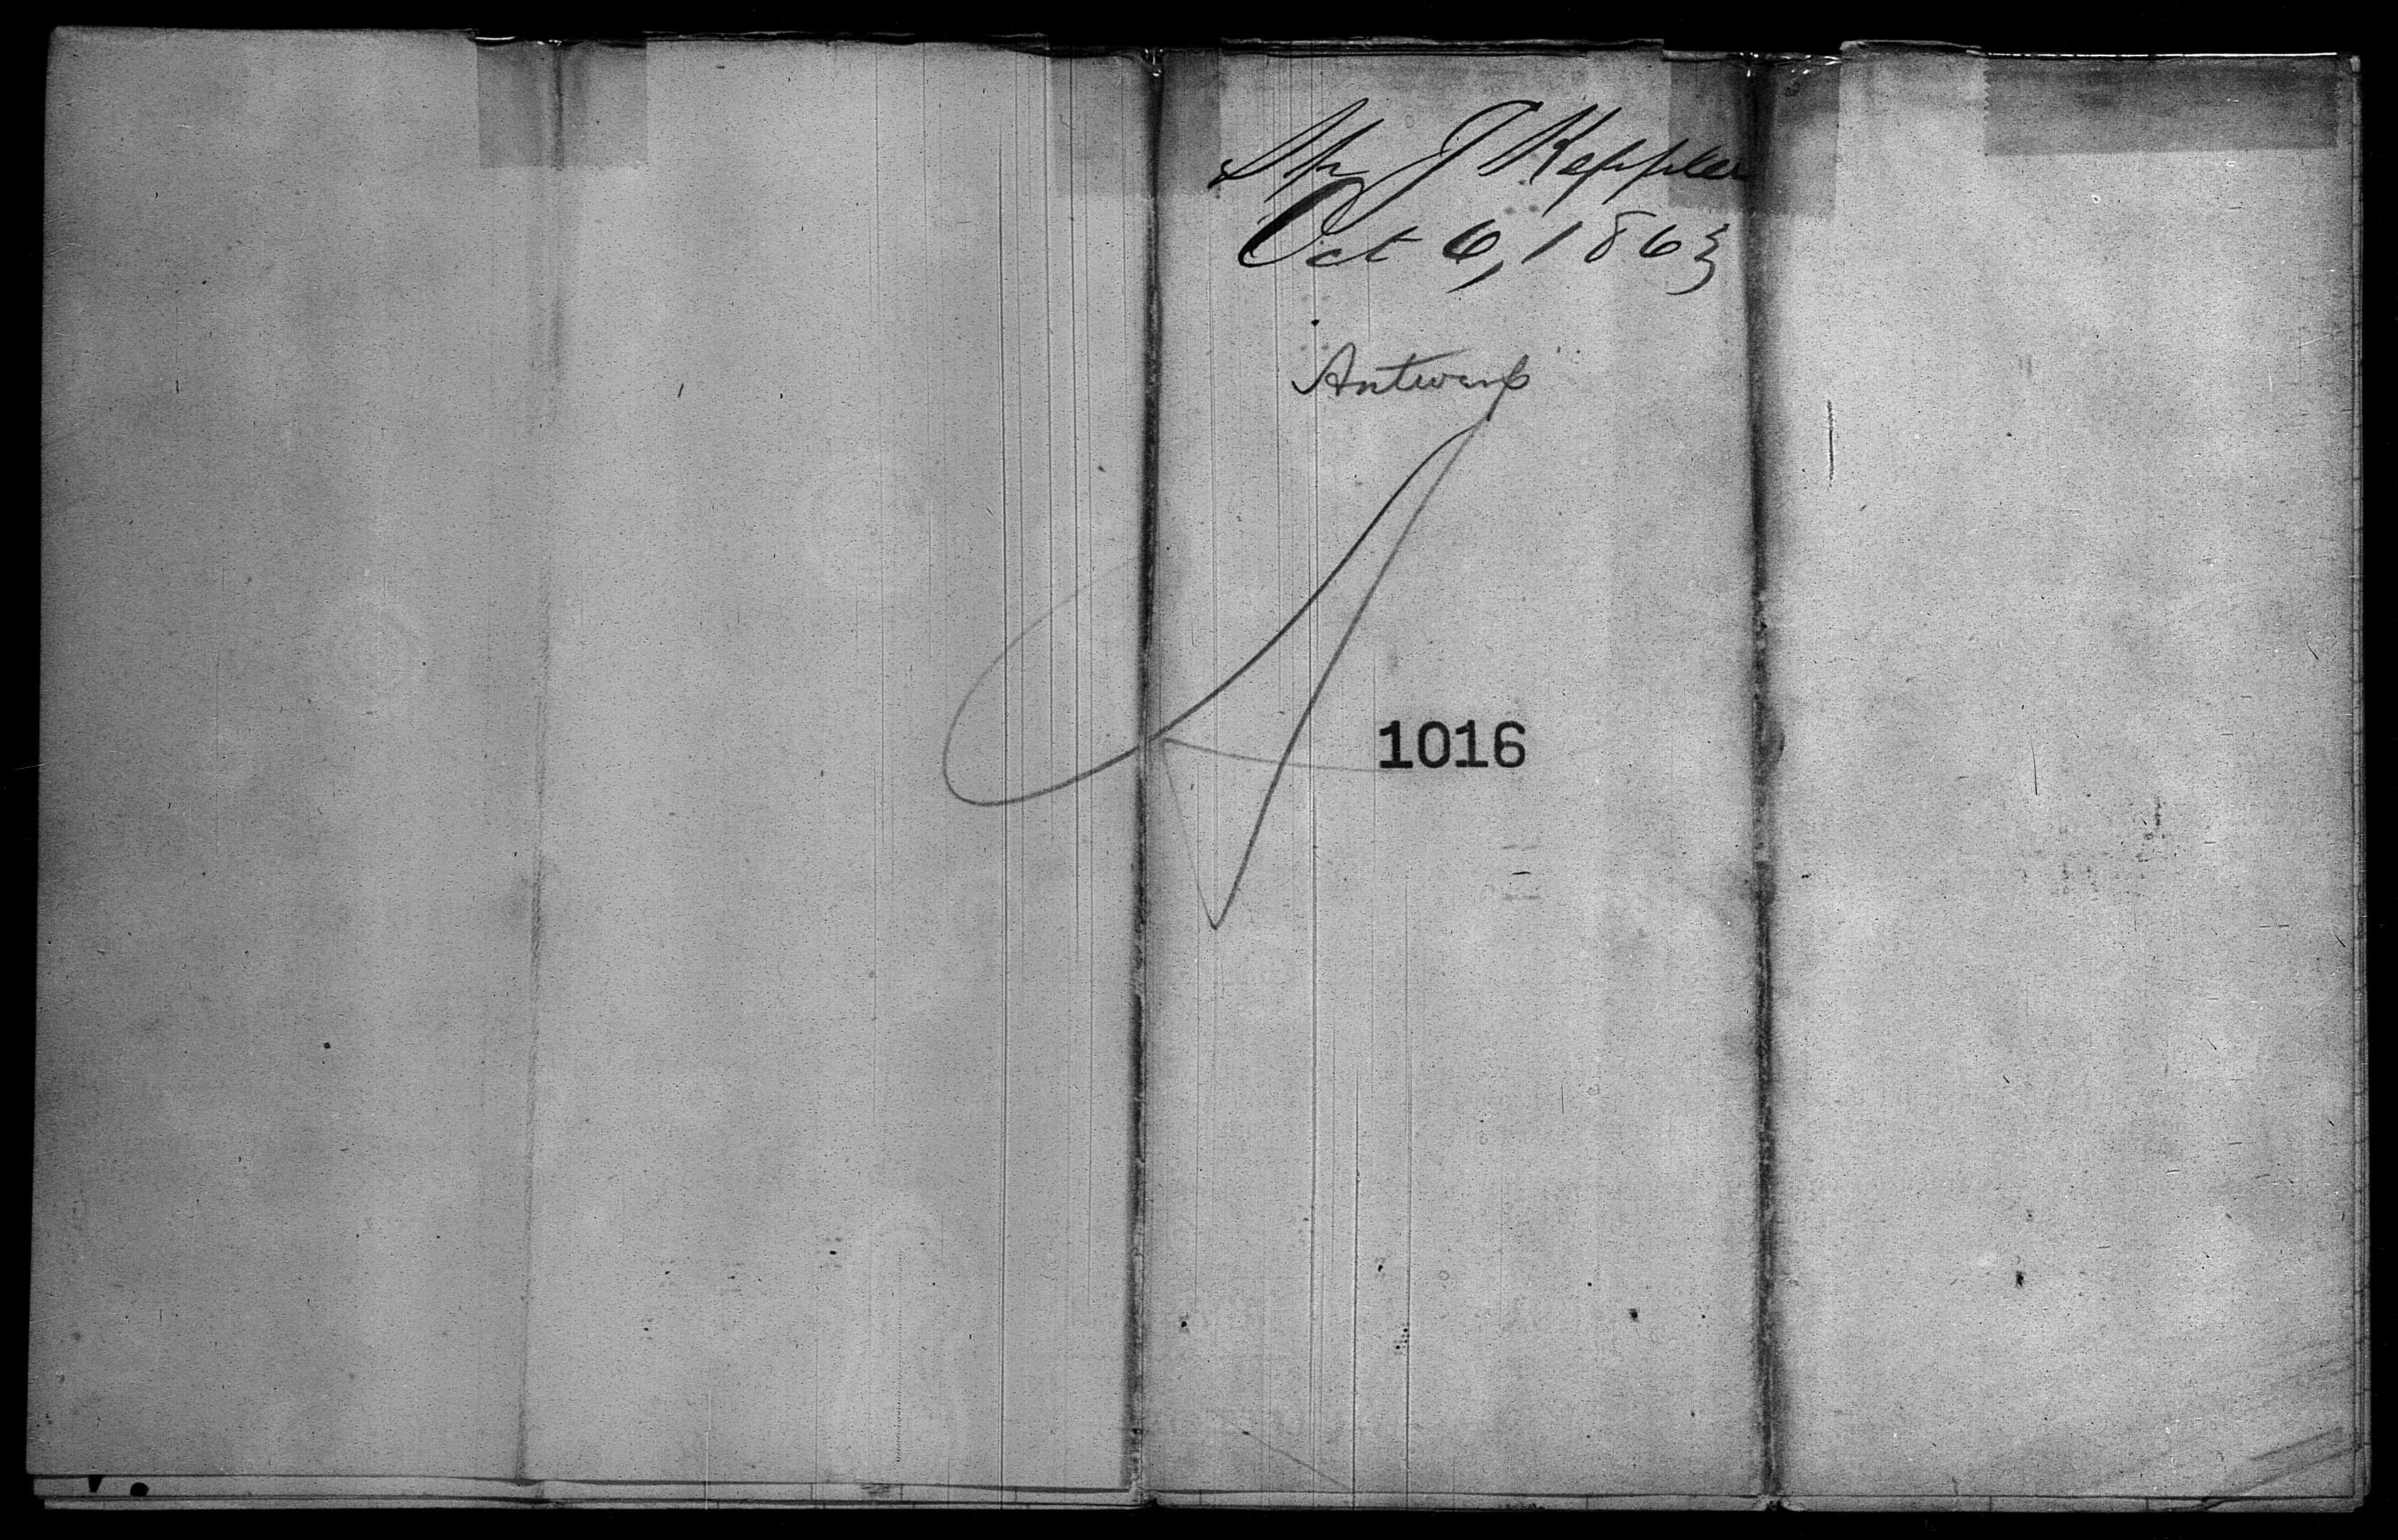 Sh J Keppler
Oct 6, 1863
Antwerp
1016